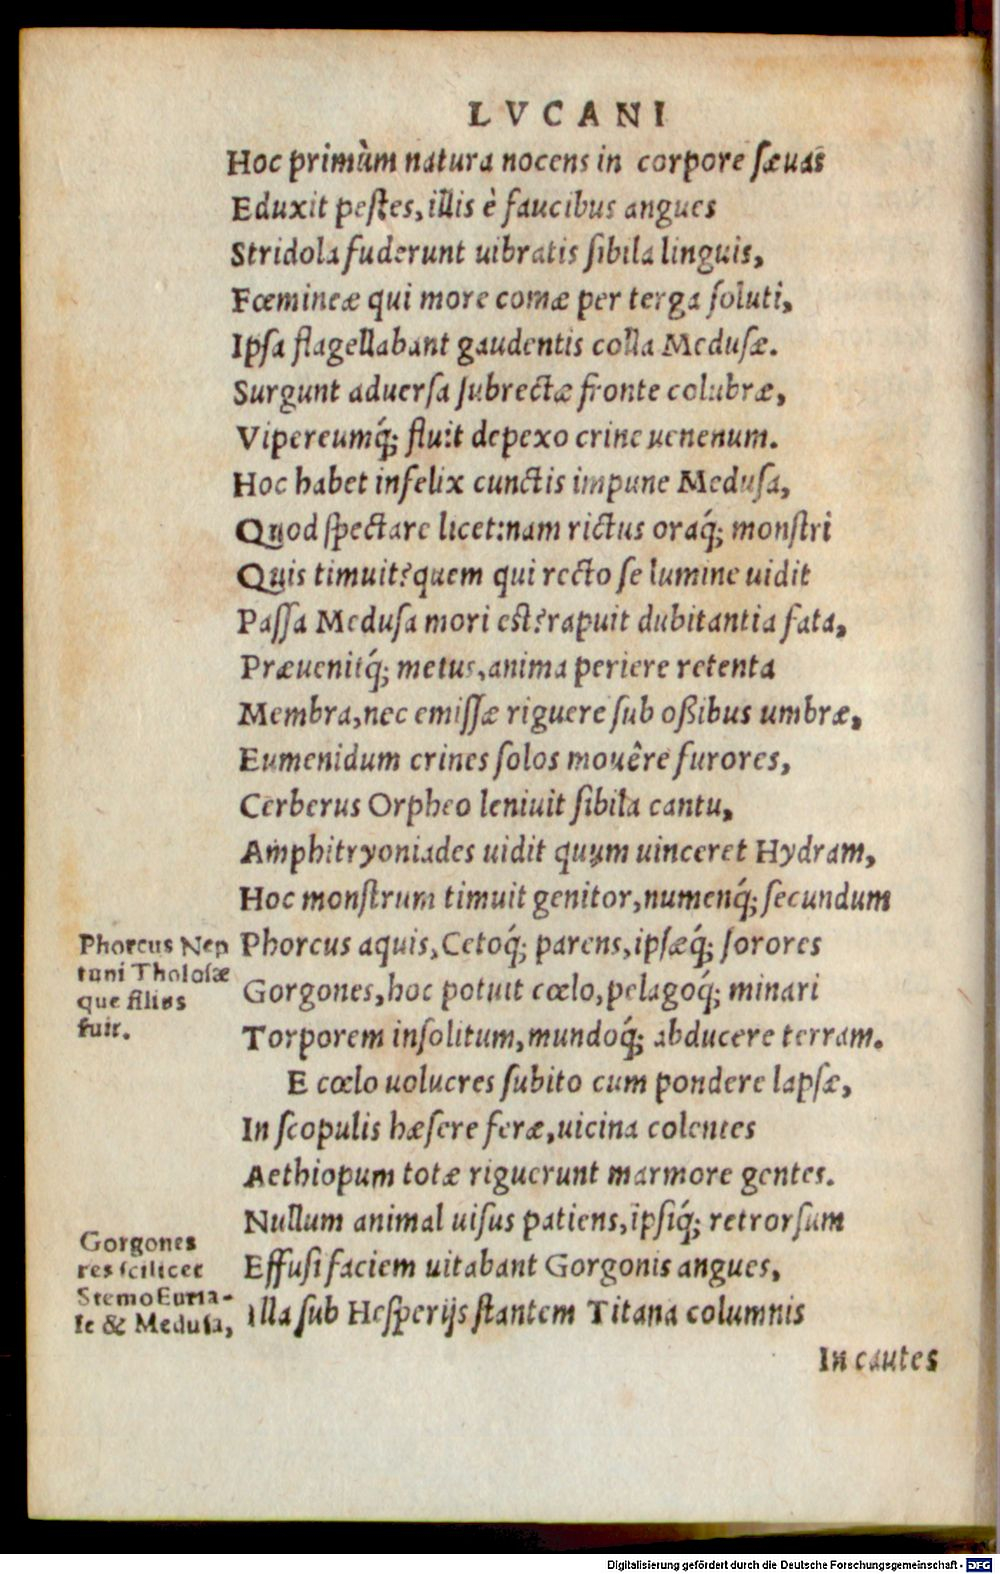 LVCANI
Hoc primùm natura nocens in corpore sæuas
Eduxit pestes, illis è faucibus angues
Stridola fuderunt uibratis sibila linguis,
Fœmineæ qui more comæ per terga soluti,
Ipsa flagellabant gaudentis colla Medusæ.
Surgunt aduersa subrectæ fronte colubræ,
Vipereumq́; fluit depexo crine uenenum.
Hoc habet infelix cunctis impune Medusa,
Quod spectare licet: nam rictus oraq́; monstri
Quis timuit? quem qui recto se lumine uidit
Passa Medusa mori est? rapuit dubitantia fata,
Præuenitq́; metus, anima periere retenta
Membra, nec emissæ riguere sub oßibus umbræ,
Eumenidum crines solos mouêre furores,
Cerberus Orpheo leniuit sibila cantu,
Amphitryoniades uidit quum uinceret Hydram,
Hoc monstrum timuit genitor, numenq́; secundum
Phorcus aquis, Cetoq́; parens, ipsæq́; sorores
Gorgones, hoc potuit cœlo, pelagoq́; minari
Torporem insolitum, mundoq́; abducere terram.
E cœlo uolucres subito cum pondere lapsæ,
In scopulis hæsere feræ, uicina colentes
Aethiopum totæ riguerunt marmore gentes.
Nullum animal uisus patiens, ipsiq́; retrorsum
Effusi faciem uitabant Gorgonis angues,
illa sub Hesperijs stantem Titana columnis
In cautes
Phorcus Nep
tuni Tholosæ
que filius
fuit.
Gorgones
res scilicet
Stemo Euria-
le & Medusa,
Digitalisierung gefördert durch die Deutsche Forschungsgemeinschaft - DFG